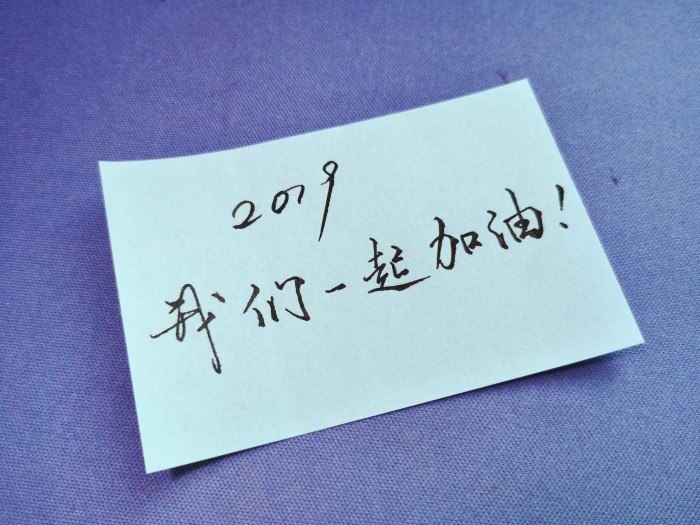 2019
我们一起加油!